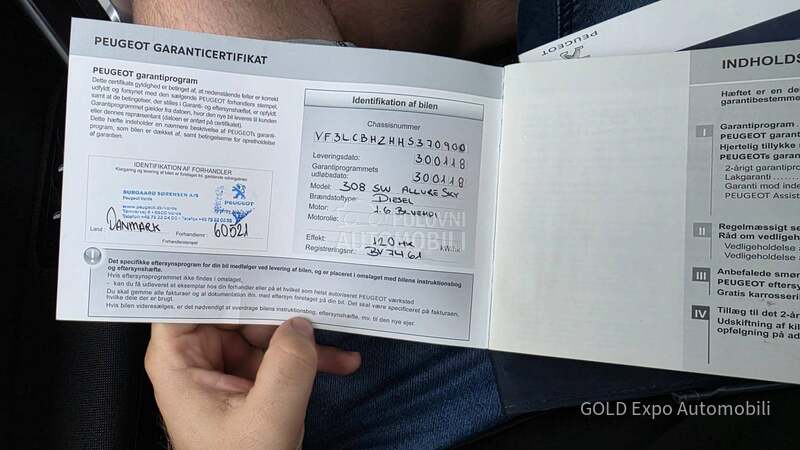 PEUGEOT GARANTICERTIFIKAT
PEUGEOT garantiprogram
Dette certifikats gyldighed er betinget af, at nedenstående felter er korrekt
udfyldt og forsynet med den sælgende PEUGEOT forhandlers stempel,
samt at de betingelser, der stilles i Garanti- og eftersynshæftet, er opfyldt.
Garantiprogrammet gælder fra datoen, hvor den nye bil leveres til kunden
eller dennes repræsentant (datoen er anført på certifikatet).
Dette hæfte indeholder en nærmere beskrivelse af PEUGEOTs garanti-
program, som bilen er dækket af, samt betingelserne for opretholdelse
af garantien.
IDENTIFIKATION AF FORHANDLER
BURGAARD SØRENSEN A/S
Peugeot Varde
PEUGEOT
Land:
DANMARK
Forhandlernr.:
60521
Forhandlerstempel
Identifikation af bilen
Chassisnummer
VF3LCBHZHHS370900
Leveringsdato: 300118
Garantiprogrammets
udløbsdato: 300118
Model: 308 SW ALLURE SKY
Brændstoftype: DIESEL
Motor: 1.6 BLUEHDI
Motorolie:
Effekt: 120 HK
Registreringsnr.: BV 7461
POLOVNI
AUTOMOBILI
Det specifikke eftersynsprogram for din bil medfølger ved levering af bilen, og er placeret i omslaget med bilens instruktionsbog
og eftersynshæfte.
Hvis eftersynsprogrammet ikke findes i omslaget,
- kan du få udleveret et eksemplar hos din forhandler eller på et hvilket som helst autoriseret PEUGEOT værksted
Du skal gemme alle fakturaer og al dokumentation ifm. med eftersyn foretaget på din bil. Det skal være specificeret på fakturaen,
hvilke dele der er brugt.
Hvis bilen videresælges, er det nødvendigt at overdrage bilens instruktionsbog, eftersynshæfte, mv. til den nye ejer.
PEUGEOT
INDHOLDS
Hæftet er en de
garantibestemme
I
Garantiprogram
PEUGEOT garant
Hjertelig tillykke
PEUGEOTs garant
2-årigt garantipr
Lakgaranti
Garanti mod inde
PEUGEOT Assist
II
Regelmæssigt se
Råd om vedligeh
Vedligeholdelse
Vedligeholdelse
III
Anbefalede smøre
PEUGEOT efters
Gratis karrosseri
IV
Tillæg til det 2-år
Udskiftning af kil
opfølgning på ad
GOLD Expo Automobili